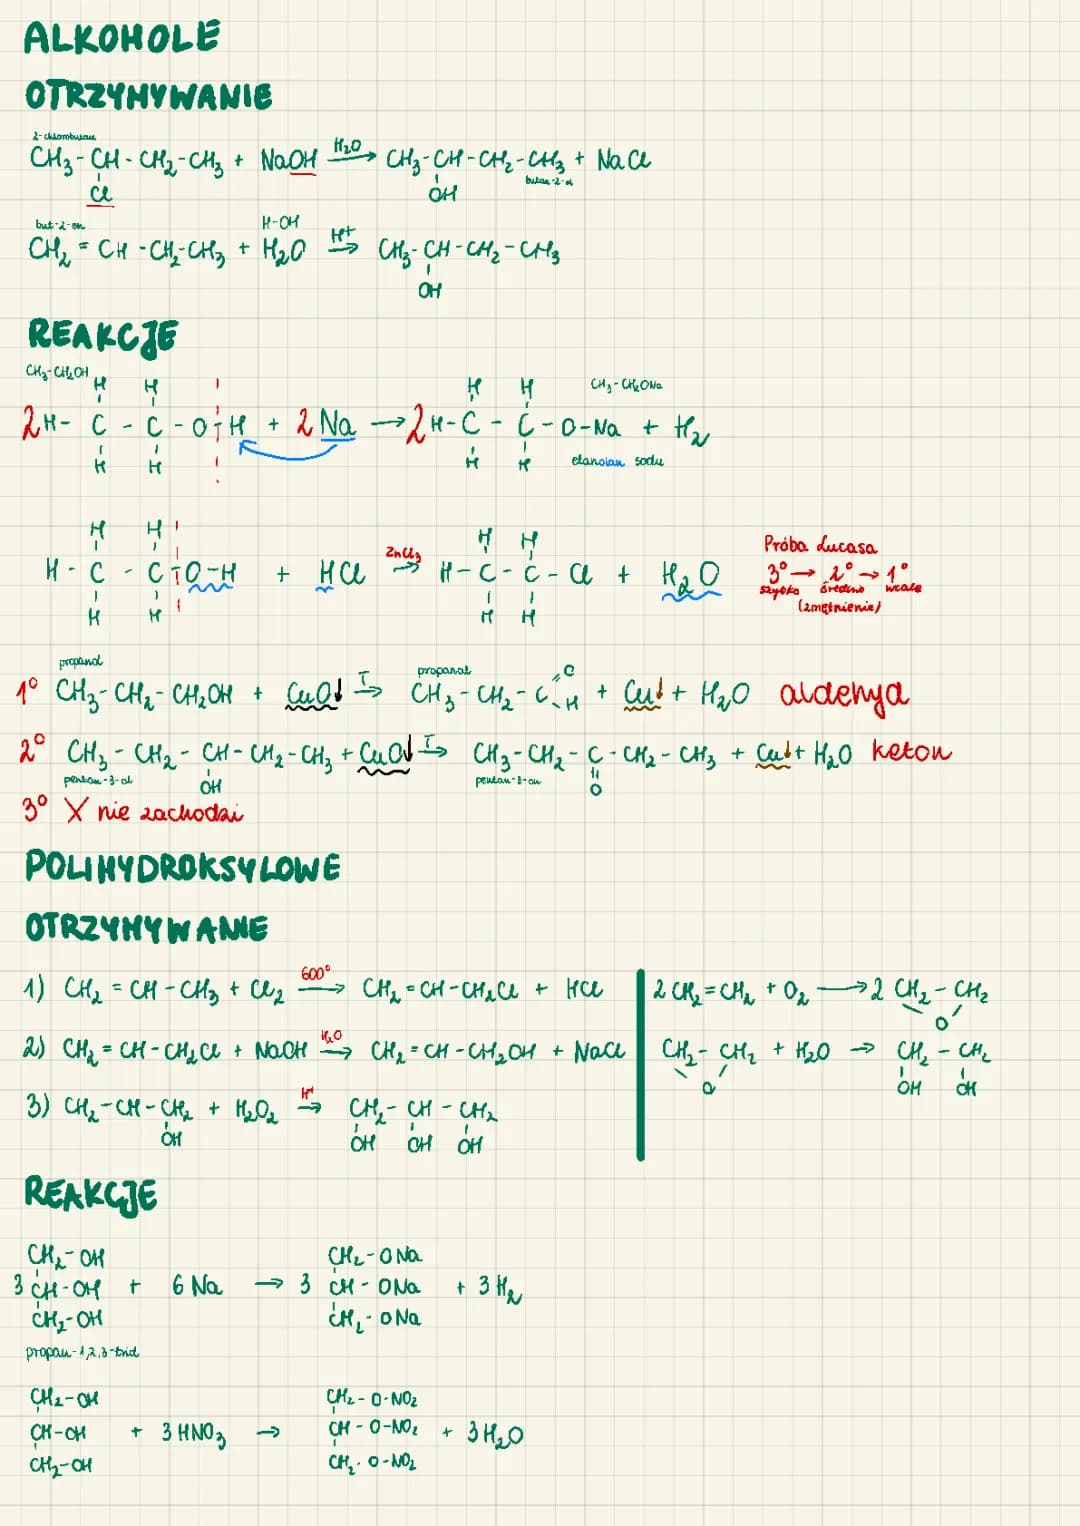 ALKOHOLE
OTRZYMYWANIE
2-chlorobutan
CH₃-CH-CH₂-CH₃ + NaOH —H₂O→ CH₃-CH-CH₂-CH₃ + NaCl
Cl OH butan-2-ol
but-2-en H-OH
CH₂=CH-CH₂-CH₃ + H₂O —H⁺→ CH₃-CH-CH₂-CH₃
OH
REAKCJE
CH₃-CH₂OH H H H H CH₃-CH₂ONa
2H-C-C-O-H + 2Na → 2H-C-C-O-Na + H₂
H H H H etanolan sodu
H H H H
H-C-C-O-H + HCl —ZnCl₂→ H-C-C-Cl + H₂O
H H H H
Próba Lucasa
3° → 2° → 1°
szybko średnio wcale
(zmętnienie)
propanol propanal O
1° CH₃-CH₂-CH₂OH + CuO↓ —T→ CH₃-CH₂-C-H + Cu↓ + H₂O aldehyd
2° CH₃-CH₂-CH-CH₂-CH₃ + CuO↓ —T→ CH₃-CH₂-C-CH₂-CH₃ + Cu↓ + H₂O keton
pentan-3-ol OH pentan-3-on O
3° X nie zachodzi
POLIHYDROKSYLOWE
OTRZYMYWANIE
1) CH₂=CH-CH₃ + Cl₂ —600°→ CH₂=CH-CH₂Cl + HCl
2) CH₂=CH-CH₂Cl + NaOH —H₂O→ CH₂=CH-CH₂OH + NaCl
3) CH₂-CH-CH₂ + H₂O₂ —H⁺→ CH₂-CH-CH₂
OH OH OH OH
2CH₂=CH₂ + O₂ → 2CH₂-CH₂
O
CH₂-CH₂ + H₂O → CH₂-CH₂
O OH OH
REAKCJE
CH₂-OH CH₂-ONa
3 CH-OH + 6Na → 3 CH-ONa + 3H₂
CH₂-OH CH₂-ONa
propan-1,2,3-triol
CH₂-OH CH₂-O-NO₂
CH-OH + 3HNO₃ → CH-O-NO₂ + 3H₂O
CH₂-OH CH₂-O-NO₂